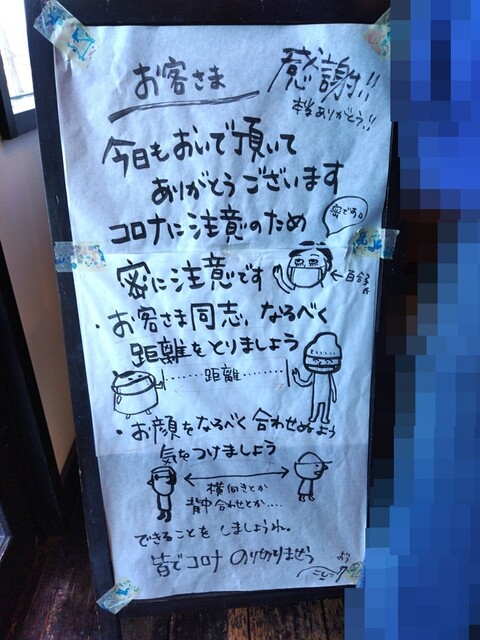 お客さま 感謝!!
本当ありがとう!!
今日もおいで頂いて
ありがとうございます
コロナに注意のため
密です。
密に注意です
←百合子氏
・お客さま同志、なるべく
距離をとりましょう
距離
・お顔をなるべく合わせぬよう
気をつけましょう
横向きとか
背中合わせとか….
できることを しましょうね。
皆でコロナ のり切りませう